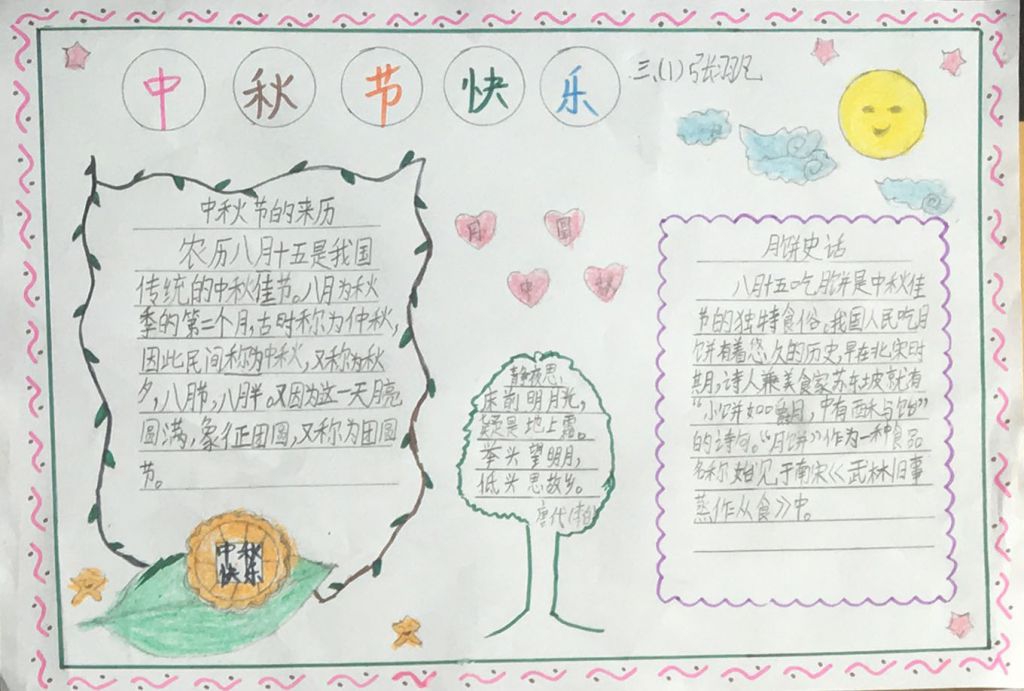 中秋节快乐
三、(1)张
中秋节的来历
农历八月十五是我国
传统的中秋佳节。八月为秋
季的第二个月,古时称为仲秋,
因此民间称为中秋,又称为秋
夕,八月节,八月半。又因为这一天月亮
圆满,象征团圆,又称为团圆
节。
中秋
快乐
月 圆
中 秋
静夜思、
床前明月光,
疑是地上霜。
举头望明月,
低头思故乡。
唐代(李白)
月饼史话
八月十五吃月饼是中秋佳
节的独特食俗。我国人民吃月
饼有着悠久的历史,早在北宋时
期,诗人兼美食家苏东坡就有
“小饼如嚼月,中有酥与饴”
的诗句。“月饼”作为一种食品
名称始见于南宋《武林旧事
蒸作从食》中。